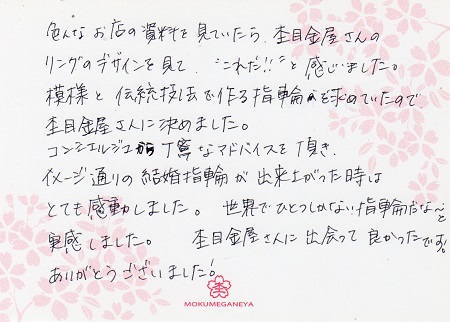 色んなお店の資料を見ていたら、杢目金屋さんの
リングのデザインを見て、"これだ!!"と感じました。
模様と伝統技法で作る指輪を求めていたので
杢目金屋さんに決めました。
コンシェルジュから丁寧なアドバイスを頂き、
イメージ通りの結婚指輪が出来上がった時は
とても感動しました。世界でひとつしかない指輪だな〜と
実感しました。 杢目金屋さんに出会って良かったです!
ありがとうございました!
杢
MOKUMEGANEYA